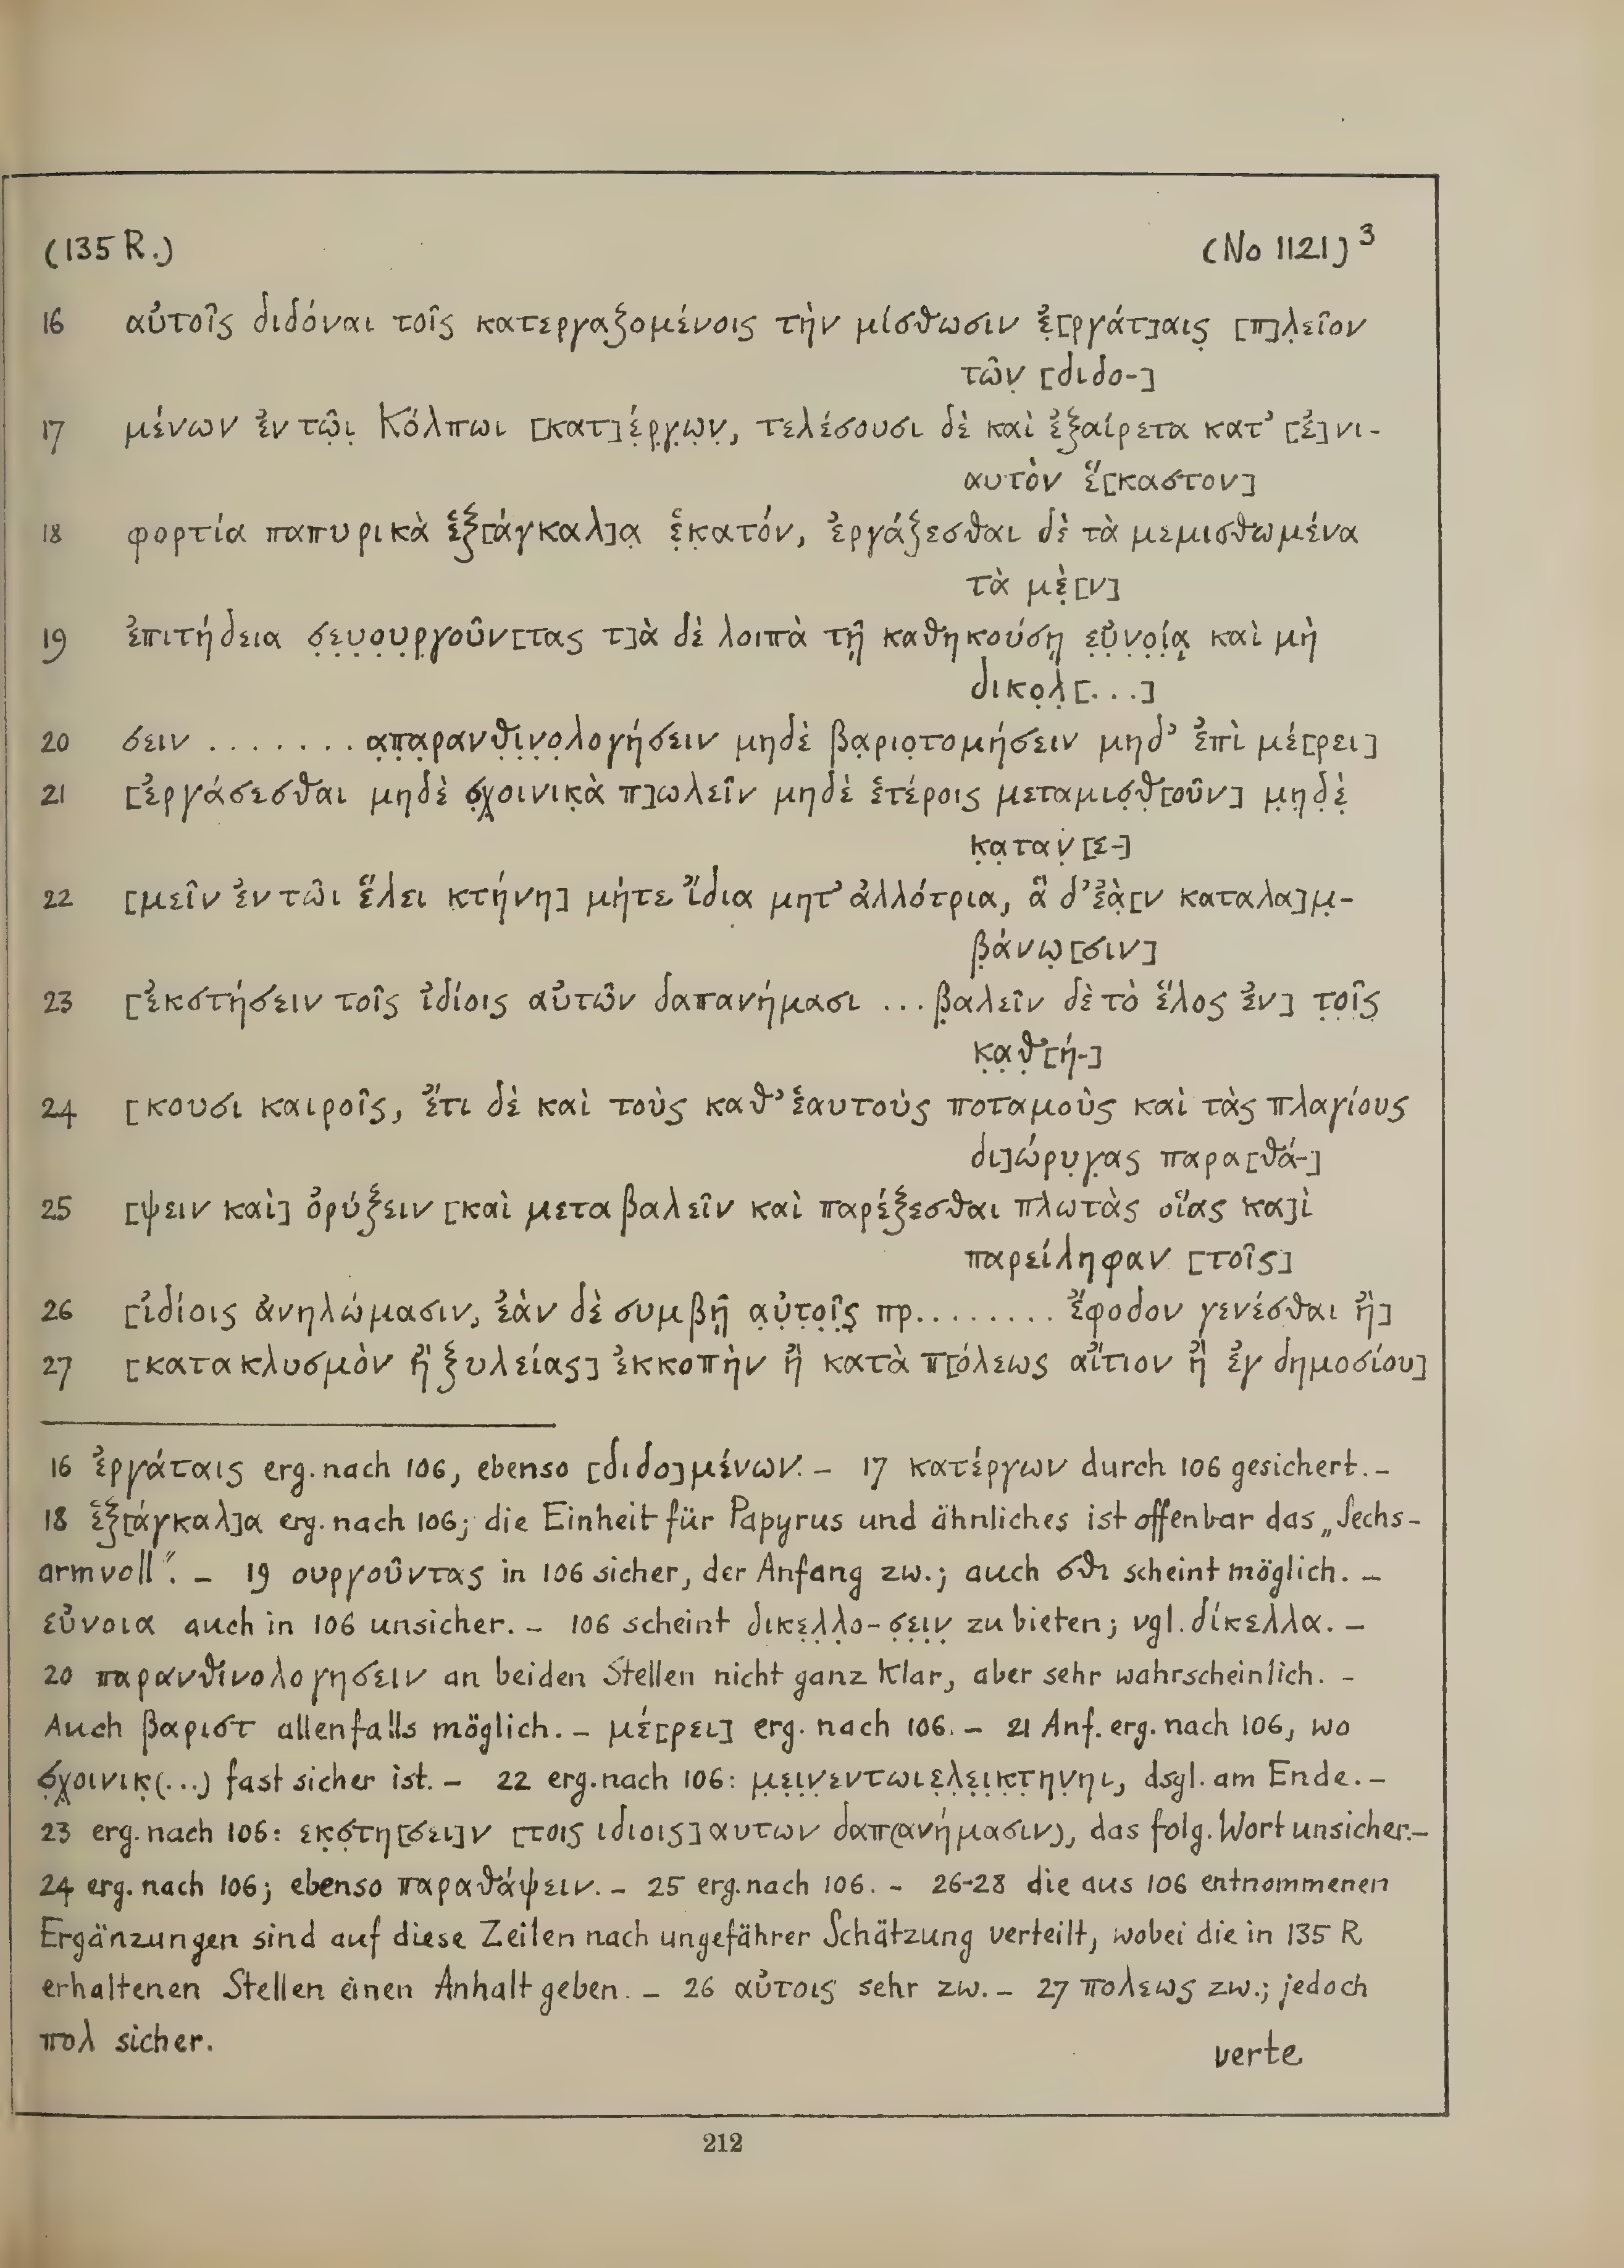 (135 R.) (No 1121) 3
16 αὐτοῖς διδόναι τοῖς κατεργαζομένοις τὴν μίσθωσιν ἐ̣[ργάτ]αις̣ [π]λ̣εῖον
τῶν̣ [διδο-]
17 μένων ἐν τῶ̣ι̣ Κόλπωι [κατ]έ̣ρ̣γ̣ω̣ν̣, τελέσουσι δὲ καὶ ἐξαίρετα κατ’ [ἐ]νι-
αυτὸν ἕ̣[καστον]
18 φορτία παπυρικὰ ἑξ[άγκαλ]α̣ ἑ̣κ̣ατόν, ἐργάζεσθαι δὲ τὰ μεμισθωμένα
τὰ μὲ̣[ν]
19 ἐπιτήδεια σ̣ε̣υ̣ο̣υ̣ρ̣γοῦν[τας τ]ὰ δὲ λοιπὰ τῇ καθηκούσῃ ε̣ὐ̣ν̣ο̣ί̣ᾳ καὶ μὴ
δικο̣λ̣[...]
20 σειν ....... α̣π̣α̣ρανθ̣ι̣ν̣ο̣λογήσειν μηδὲ βα̣ριο̣τομήσειν μηδ’ ἐπὶ μέ[ρει]
21 [ἐργάσεσθαι μηδὲ σ̣χ̣οινικ̣ὰ π]ωλεῖν μηδὲ ἑτέροις μεταμισ̣θ̣[οῦν] μ̣η̣δ̣ὲ̣
κ̣α̣ταν̣[ε-]
22 [μεῖν ἐν τῶι ἕλει κτήνη] μήτε ἴδια μητ’ ἀλλότρια, ἃ δ’ ἐὰ̣[ν καταλα]μ̣-
β̣άνω̣[σιν]
23 [ἐκστήσειν τοῖς ἰδίοις αὐτῶν δαπανήμασι ... β̣αλεῖν δὲ τὸ ἕλος ἐν] τ̣ο̣ῖ̣ς̣
κ̣α̣θ̣[ή-]
24 [κουσι καιροῖς, ἔτι δὲ καὶ τοὺς καθ’ ἑαυτοὺς ποταμοὺς καὶ τὰς πλαγίους
δι]ώρυ̣γ̣ας παρα[θά-]
25 [ψειν καὶ] ὀρύξειν [καὶ μεταβαλεῖν καὶ παρέξεσθαι πλωτὰς οἵας κα]ὶ
παρείληφαν [τοῖς]
26 [ἰδίοις ἀνηλώμασιν, ἐὰν δὲ συμβῇ α̣ὐ̣τ̣ο̣ῖ̣ς̣ πρ........ ἔφοδον γενέσθαι ἢ]
27 [κατακλυσμὸν ἢ ξυλείας] ἐκκοπὴν ἢ κατὰ π[όλεως αἴτιον ἢ ἐγ δημοσίου]
16 ἐργάταις erg. nach 106, ebenso [διδο]μένων. – 17 κατέργων durch 106 gesichert. –
18 ἑξ[άγκαλ]α erg. nach 106; die Einheit für Papyrus und ähnliches ist offenbar das „Sechs-
armvoll“. – 19 ουργοῦντας in 106 sicher, der Anfang zw.; auch σθι scheint möglich. –
εὐνοια auch in 106 unsicher. – 106 scheint δικε̣λ̣λ̣ο-σ̣ε̣ι̣ν̣ zu bieten; vgl. δίκελλα. –
20 παρανθινολογησειν an beiden Stellen nicht ganz klar, aber sehr wahrscheinlich. –
Auch βαριστ allenfalls möglich. – μέ[ρει] erg. nach 106. – 21 Anf. erg. nach 106, wo
σ̣χ̣οινικ̣(...) fast sicher ist. – 22 erg. nach 106: μ̣ε̣ι̣ν̣εντωιε̣λ̣ε̣ι̣κ̣τ̣η̣ν̣η̣ι̣, dsgl. am Ende. –
23 erg. nach 106: εκ̣σ̣τη[σει]ν [τοις ιδιοις] αυτων δαπ(ανήμασιν), das folg. Wort unsicher. –
24 erg. nach 106; ebenso παραθάψειν. – 25 erg. nach 106. – 26-28 die aus 106 entnommenen
Ergänzungen sind auf diese Zeilen nach ungefährer Schätzung verteilt, wobei die in 135 R
erhaltenen Stellen einen Anhalt geben. – 26 αὐτοις sehr zw. – 27 πολεως zw.; jedoch
πολ sicher.
verte
212